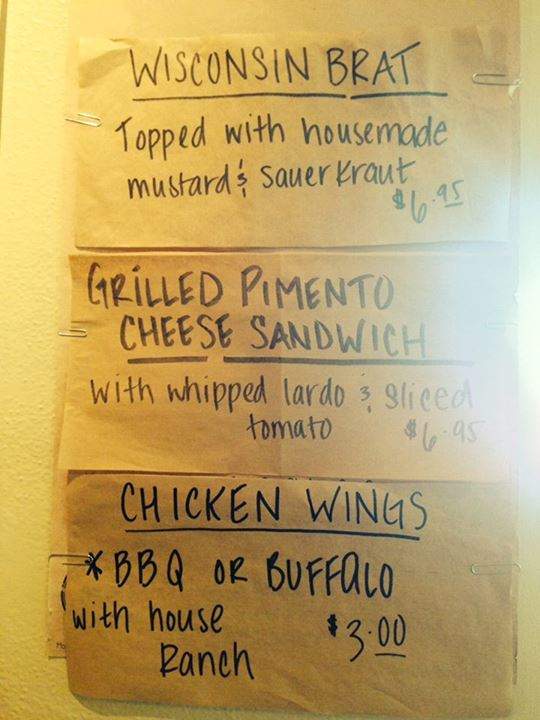 WISCONSIN BRAT
Topped with housemade
mustard & sauerkraut
$6.95
GRILLED PIMENTO
CHEESE SANDWICH
with whipped lardo & sliced
tomato $6.95
CHICKEN WINGS
*BBQ OR BUFFALO
with house
Ranch $3.00